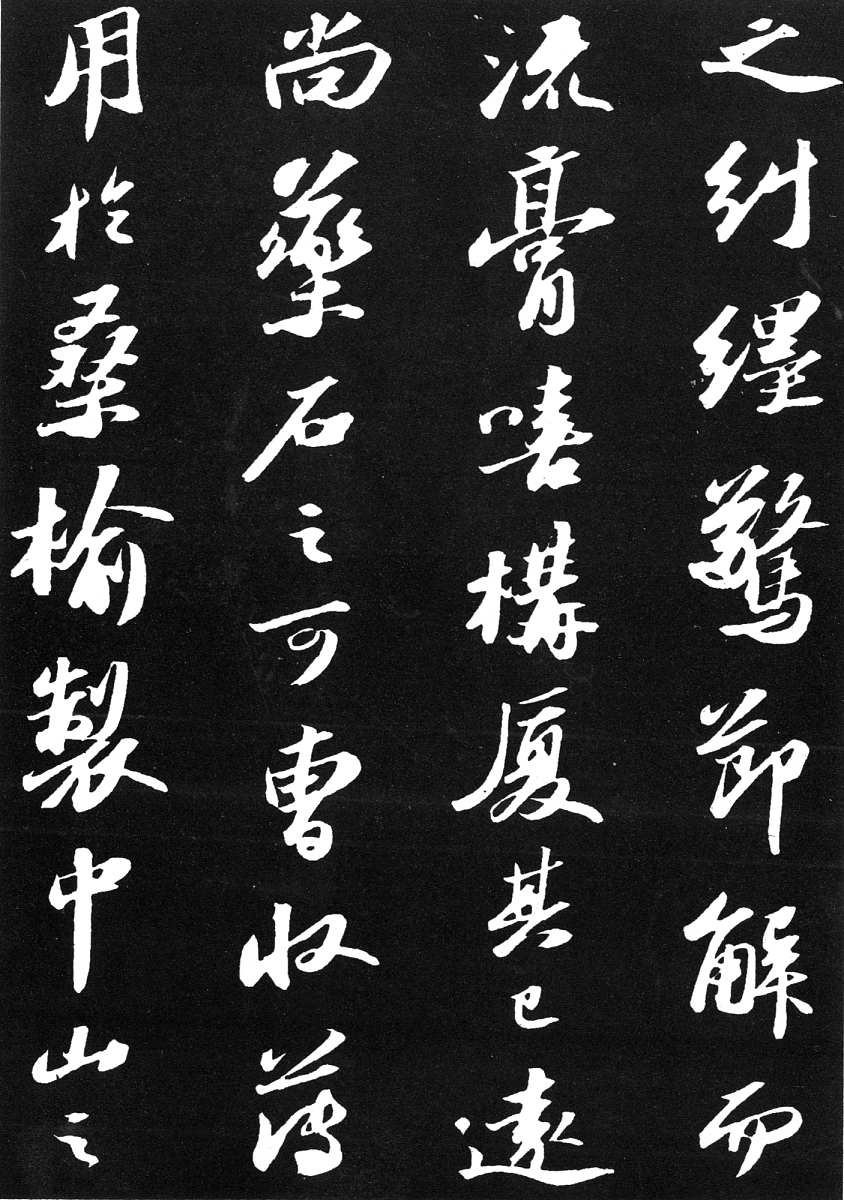 之糾纆驚節解而
流膏嗟構厦其已遠
尚藥石之可曹收薄
用於桑榆製中山之